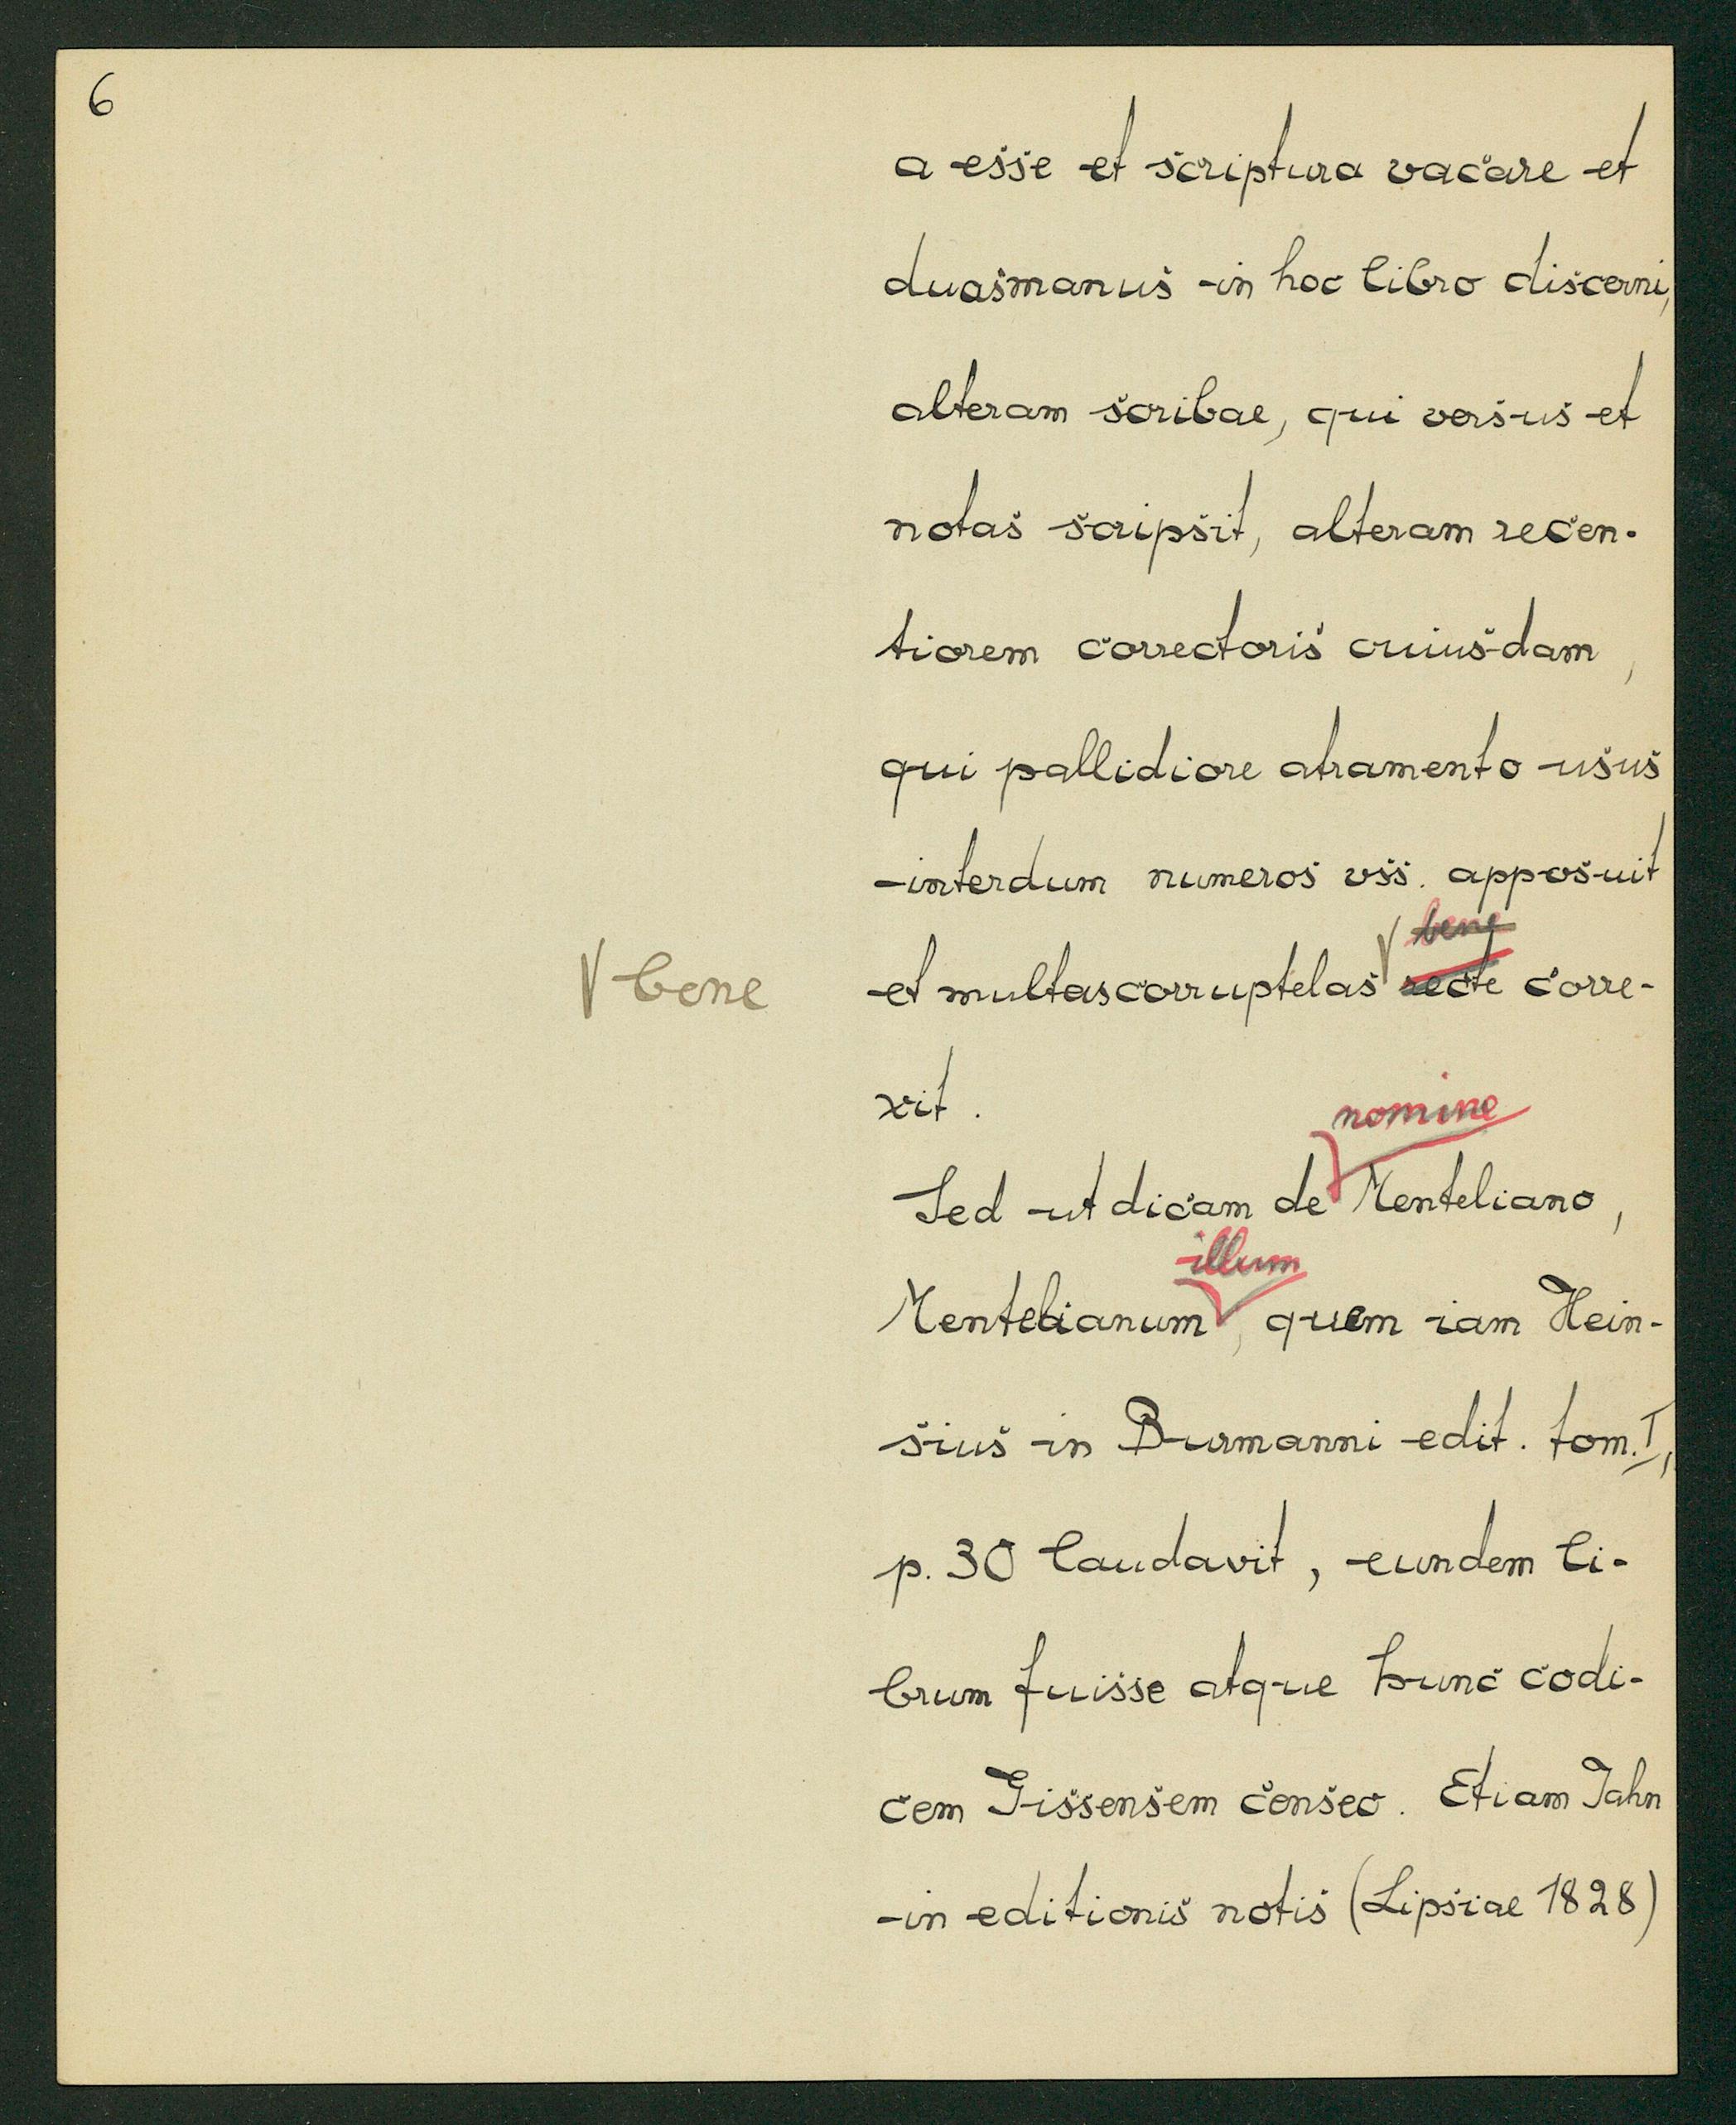 6
a esse et scriptura vacare et
duasmanus in hoc libro discerni,
alteram scribae, qui versus et
notas scripsit, alteram recen-
tiorem correctoris cuiusdam,
qui pallidiore atramento usus
interdum numeros vss. apposuit
bene
√ bene et multascorruptelas √ recte corre-
xit.
nomine
Sed ut dicam de Menteliano,
illum
Mentelianum, quem iam Hein-
sius in Burmanni edit. tom. I,
p. 30 laudavit, eundem li-
brum fuisse atque hunc codi-
cem Gissensem censeo. Etiam Jahn
in editionis notis (Lipsiae 1828)